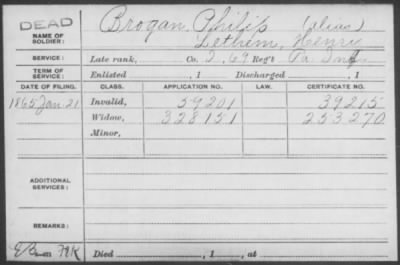 DEAD
Brogan, Philip (alias)
NAME OF SOLDIER: Lethim, Henry
SERVICE: Late rank, Co. I, 69 Reg't Pa. Inf
TERM OF SERVICE: Enlisted , 1 Discharged , 1
DATE OF FILING. CLASS. APPLICATION NO. LAW. CERTIFICATE NO.
1865 Jan. 21 Invalid, 59201 39215
Widow, 328151 253270
Minor,
ADDITIONAL SERVICES:
REMARKS:
Died , 1 , at